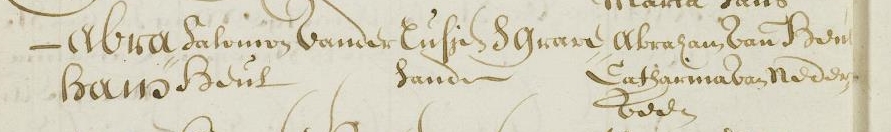 Maria Jans
– Abra Salomon vander Lusje s Grave Abraham van Beu
ham Beul sande Catharina van Neder
veen